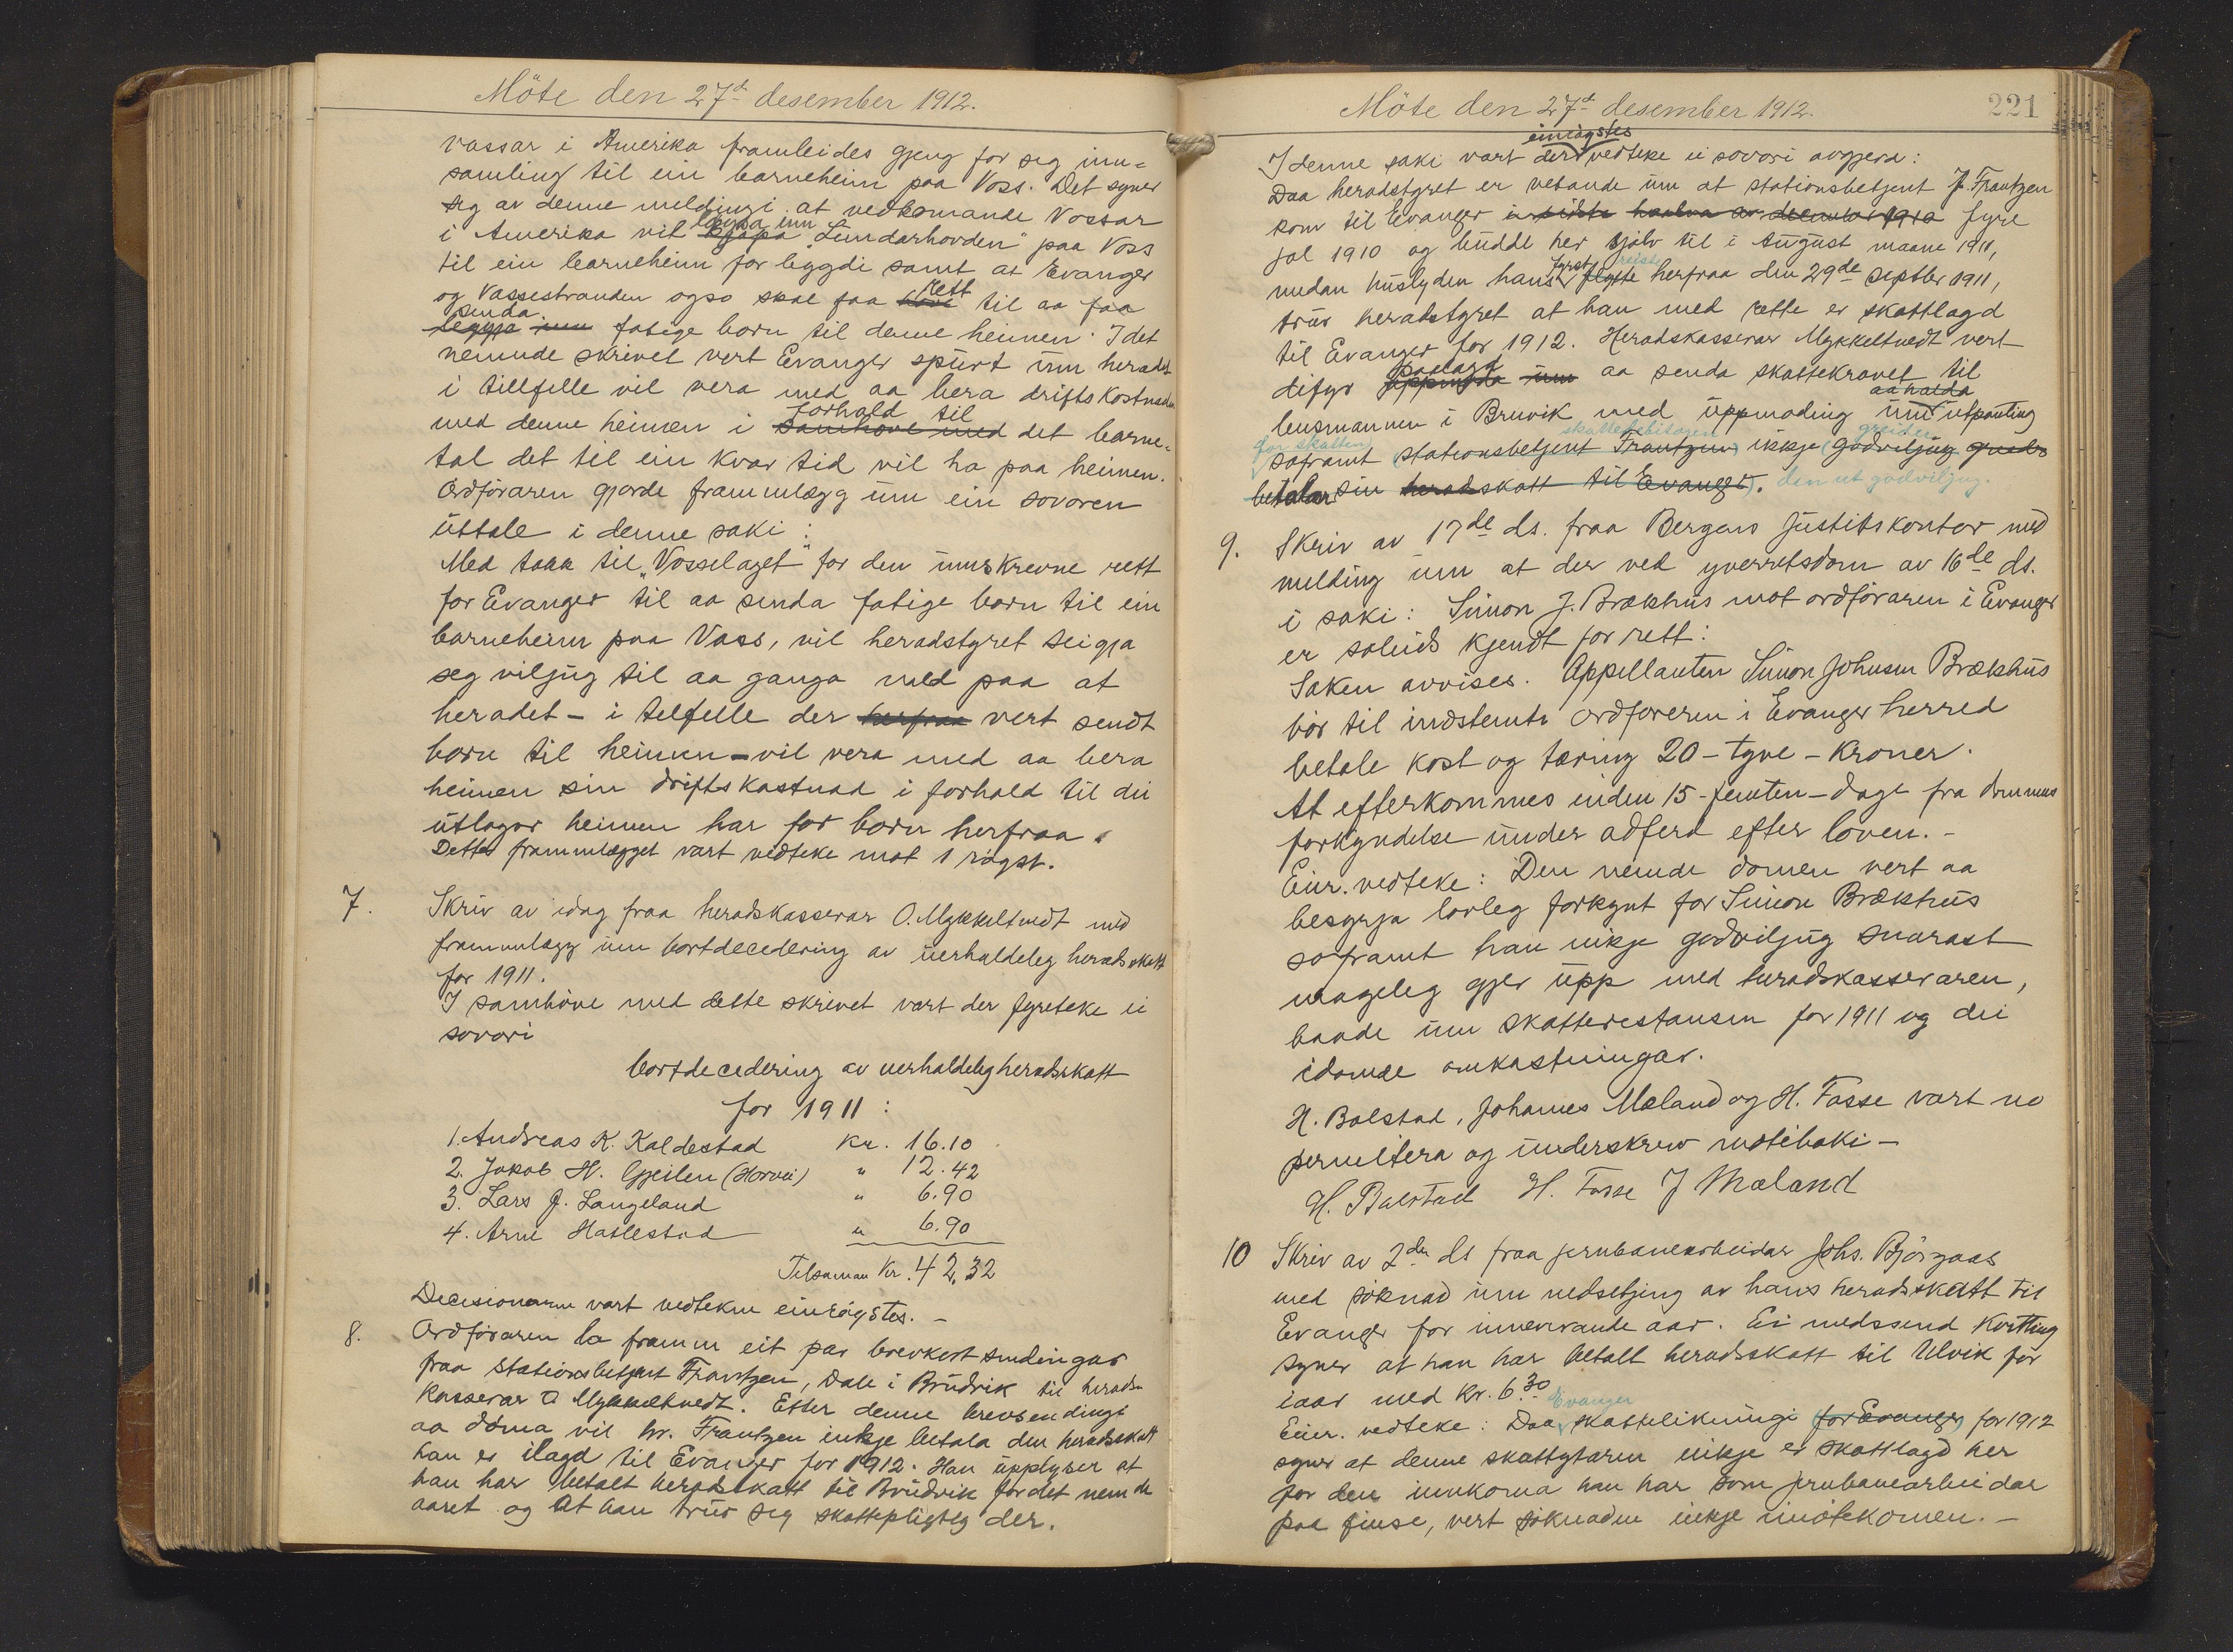 Möte den 27d desember 1912.
vassar i Amerika framleides gjeng for seg inn=
samling til ein barneheim paa Voss. Det syner
seg av denne meldingi at vedkomande Vossar
løysa inn
i Amerika vil kjøpa "Lundarhovden" paa Voss
til ein barneheim for bygdi samt at Evanger
rett
og Vassestranden ogso skal faa høve til aa faa
senda
leggja inn fatige born til denne heimen. I det
nemnde skrivel vert Evanger spurt um heradet
i tillfelle vil vera med aa bera driftskostnaden
forhald til
med denne heimen i samhøve med det barne=
tal det til ein kvar tid vil ha paa heimen.
Ordföraren gjorde frammlegg um ein sovoren
uttale i denne saki:
Med takk til "Vosselaget" for den umskrevne rett
for Evanger til aa senda fatige born til ein
barneheim paa Vass, vil heradstyret seigja
seg viljug til aa ganga med paa at
heradet - i telfelle der herfraa vert sendt
born til heimen - vil vera med aa bera
heimen sin driftskastnad i forhald til dei
utlagor heimen har for born herfraa.
Dette frammlegget vart vedteke mot 1 røyst.
7. Skriv av idag fraa heradskasserar O. Mykkeltvedt med
frammlegg um bortdecedering av uerhaldeleg heradsskatt
for 1911.
I samhöve med dette skrivet vart der fyreteke ei
sovori
bortdecedering av uerhaldeleg heradsskatt
for 1911:
1. Andreas K. Kaldestad kr. 16.10
2. Jakob H. Gjeilen (Horvei) " 12.42
3. Lars J. Langeland " 6.90
4. Arne Hatlestad " 6.90
Tilsaman Kr. 42,32
Decisionarne vart vedtekne einröystes. -
8. Ordföraren la framm eit par brevkortsendingar
fraa stationsbetjent Frantzen, Dale i Brudvik til herads=
kasserar O Mykkeltvedt. Etter denne brevsendingi
aa döma vil hr. Frantzen inkje betala den heradsskatt
han er ilagd til Evanger for 1912. Han upplyser at
han har betalt heradsskatt til Brudvik for det nemnde
aaret og at han trur seg skattepligtig der.
Möte den 27d desember 1912. 221
einrøystes
I denne saki vart der vedteke ei sovori avgjerd:
Daa heradstyret er vetande um at stationsbetjent J. Frantzen
kom til Evanger i sidste halva av desember 1910 fyre
jol 1910 og budde her sjølv til i August maane 1911,
fyrst reiste
medan huslyden hans flytte herfraa den 29de septbr 1911,
trur heradstyret at han med rette er skattlagd
til Evanger for 1912. Heradskasserar Mykkeltvedt vert
paalagt
difyr uppmoda um aa senda skattekravet til
aa halda
lensmannen i Bruvik med uppmoding um utpanting
for skatten skattedebitoren greider
soframt stationsbetjent Frantzen ikkje godviljug greider
betalar sin heradskatt til Evanger. den ut godviljug.
9. Skriv av 17de ds. fraa Bergens Justitskontor med
melding um at der ved yverretsdom av 16de ds.
i saki: Simon J. Brækhus mot ordföraren i Evanger
er soleids kjendt for rett:
Saken avvises. Appellanten Simon Johnsen Brækhus
bör til indstemte Ordföreren i Evanger herred
betale kost og tæring 20 - tyve - Kroner.
At efterkommes inden 15 - femten - dage fra dommens
forkyndelse under adferd efter loven. -
Einr. vedteke: Den nemde domen vert aa
besyrja lovleg forkynt for Simon Brækhus
soframt han inkje godviljug snarast
mogeleg gjer upp med heradskasseraren,
baade um skatterestansen for 1911 og dei
idömde omkastningar.
H. Bolstad, Johannes Mæland og H. Fasse vart no
permitera og underskrev møtiboki -
H. Bolstad H. Fasse J Mæland
10 Skriv av 2den ds fraa jernbanearbeidar Johs. Björgaas
med söknad um nedsetjing av hans heradsskatt til
Evanger for inneverande aar. Ei medsend kvitting
syner at han har betalt heradsskatt til Ulvik for
iaar med kr. 6.30
Evanger
Einr. vedteke: Daa skattelikningi for Evanger for 1912
syner at denne skattytaren inkje er skattlagd her
for den innkoma han har som jernbanearbeidar
paa Finse, vert söknaden inkje imötekomen. -